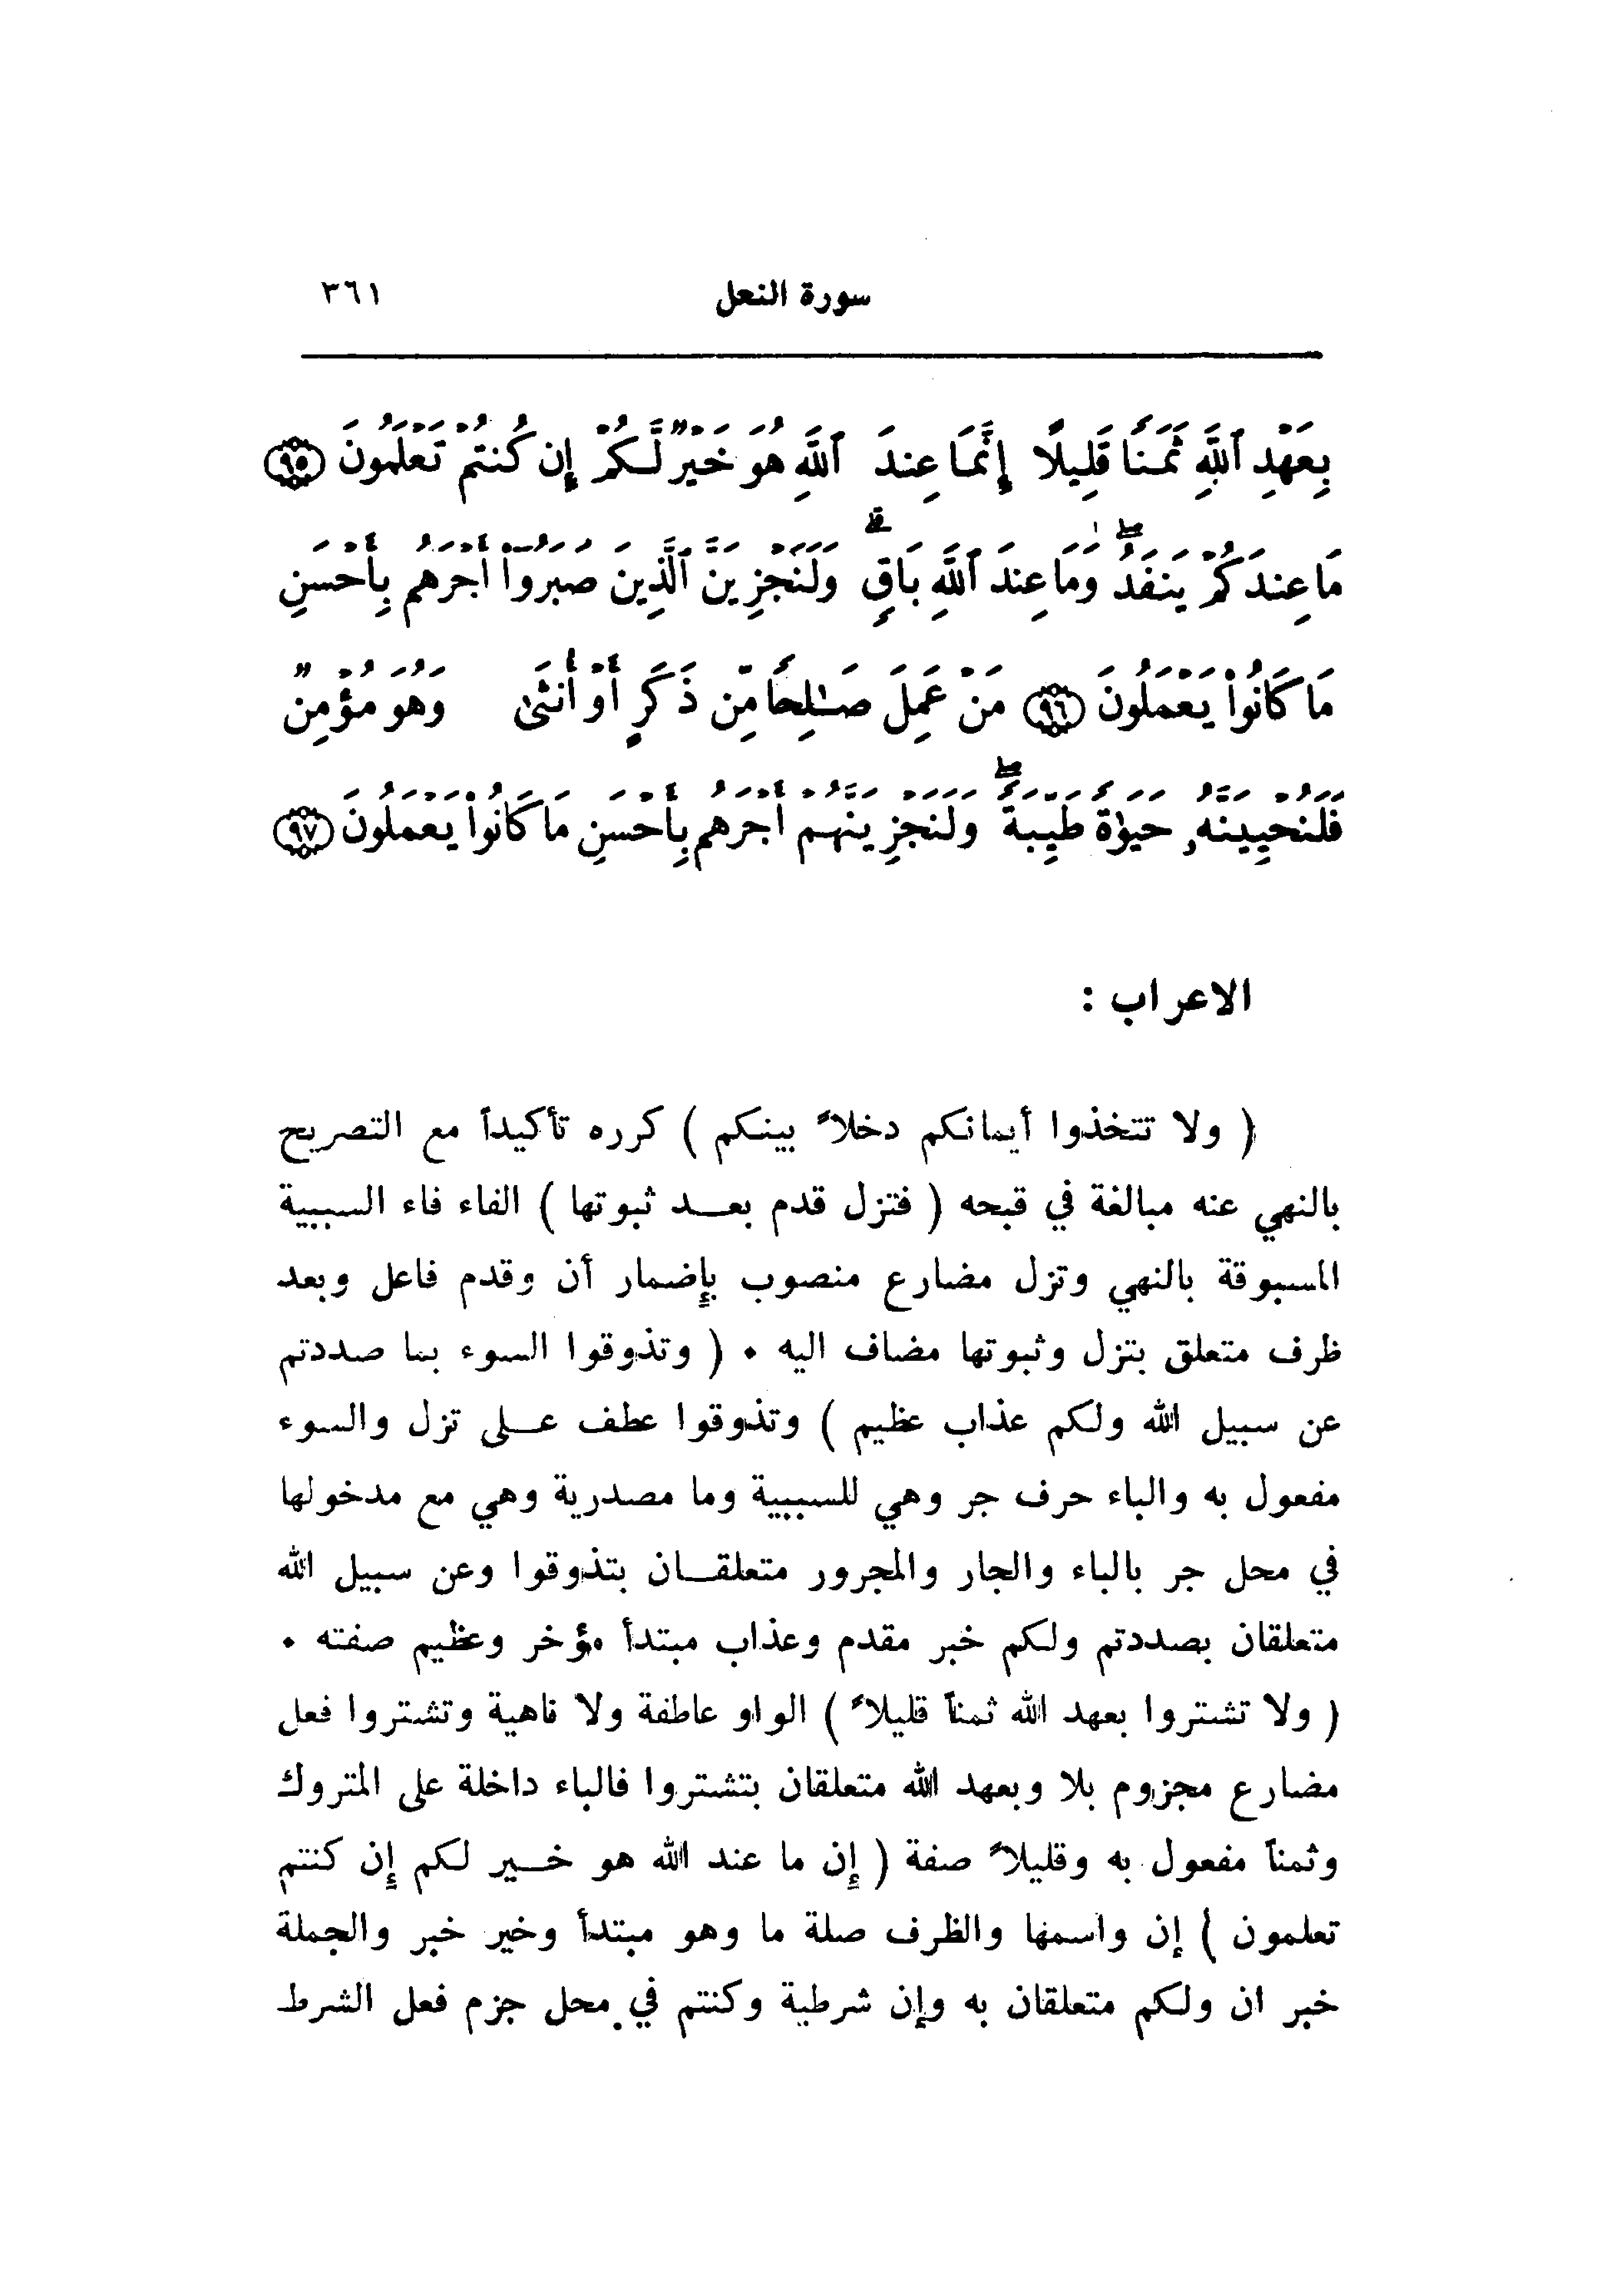 سورة النحل ٣٦١
بِعَهْدِ ٱللَّهِ ثَمَنًا قَلِيلًا إِنَّمَا عِندَ ٱللَّهِ هُوَ خَيْرٌ لَّكُمْ إِن كُنتُمْ تَعْلَمُونَ ۝٩٥
مَا عِندَكُمْ يَنفَدُ ۖ وَمَا عِندَ ٱللَّهِ بَاقٍ ۗ وَلَنَجْزِيَنَّ ٱلَّذِينَ صَبَرُوٓا۟ أَجْرَهُم بِأَحْسَنِ
مَا كَانُوا۟ يَعْمَلُونَ ۝٩٦ مَنْ عَمِلَ صَـٰلِحًا مِّن ذَكَرٍ أَوْ أُنثَىٰ وَهُوَ مُؤْمِنٌ
فَلَنُحْيِيَنَّهُۥ حَيَوٰةً طَيِّبَةً ۖ وَلَنَجْزِيَنَّهُمْ أَجْرَهُم بِأَحْسَنِ مَا كَانُوا۟ يَعْمَلُونَ ۝٩٧
الاعراب :
( ولا تتخذوا أيمانكم دخلاً بينكم ) كرره تأكيداً مع التصريح
بالنهي عنه مبالغة في قبحه ( فتزل قدم بعـــد ثبوتها ) الفاء فاء السببية
المسبوقة بالنهي وتزل مضارع منصوب بإضمار أن وقدم فاعل وبعد
ظرف متعلق بتزل وثبوتها مضاف اليه ٠ ( وتذوقوا السوء بما صددتم
عن سبيل الله ولكم عذاب عظيم ) وتذوقوا عطف عـــلى تزل والسوء
مفعول به والباء حرف جر وهي للسببية وما مصدرية وهي مع مدخولها
في محل جر بالباء والجار والمجرور متعلقـــان بتذوقوا وعن سبيل الله
متعلقان بصددتم ولكم خبر مقدم وعذاب مبتدأ مؤخر وعظيم صفته ٠
( ولا تشتروا بعهد الله ثمناً قليلاً ) الواو عاطفة ولا ناهية وتشتروا فعل
مضارع مجزوم بلا وبعهد الله متعلقان بتشتروا فالباء داخلة على المتروك
وثمناً مفعول به وقليلاً صفة ( إن ما عند الله هو خـــير لكم إن كنتم
تعلمون ) إن واسمها والظرف صلة ما وهو مبتدأ وخير خبر والجملة
خبر ان ولكم متعلقان به وإن شرطية وكنتم في محل جزم فعل الشرط